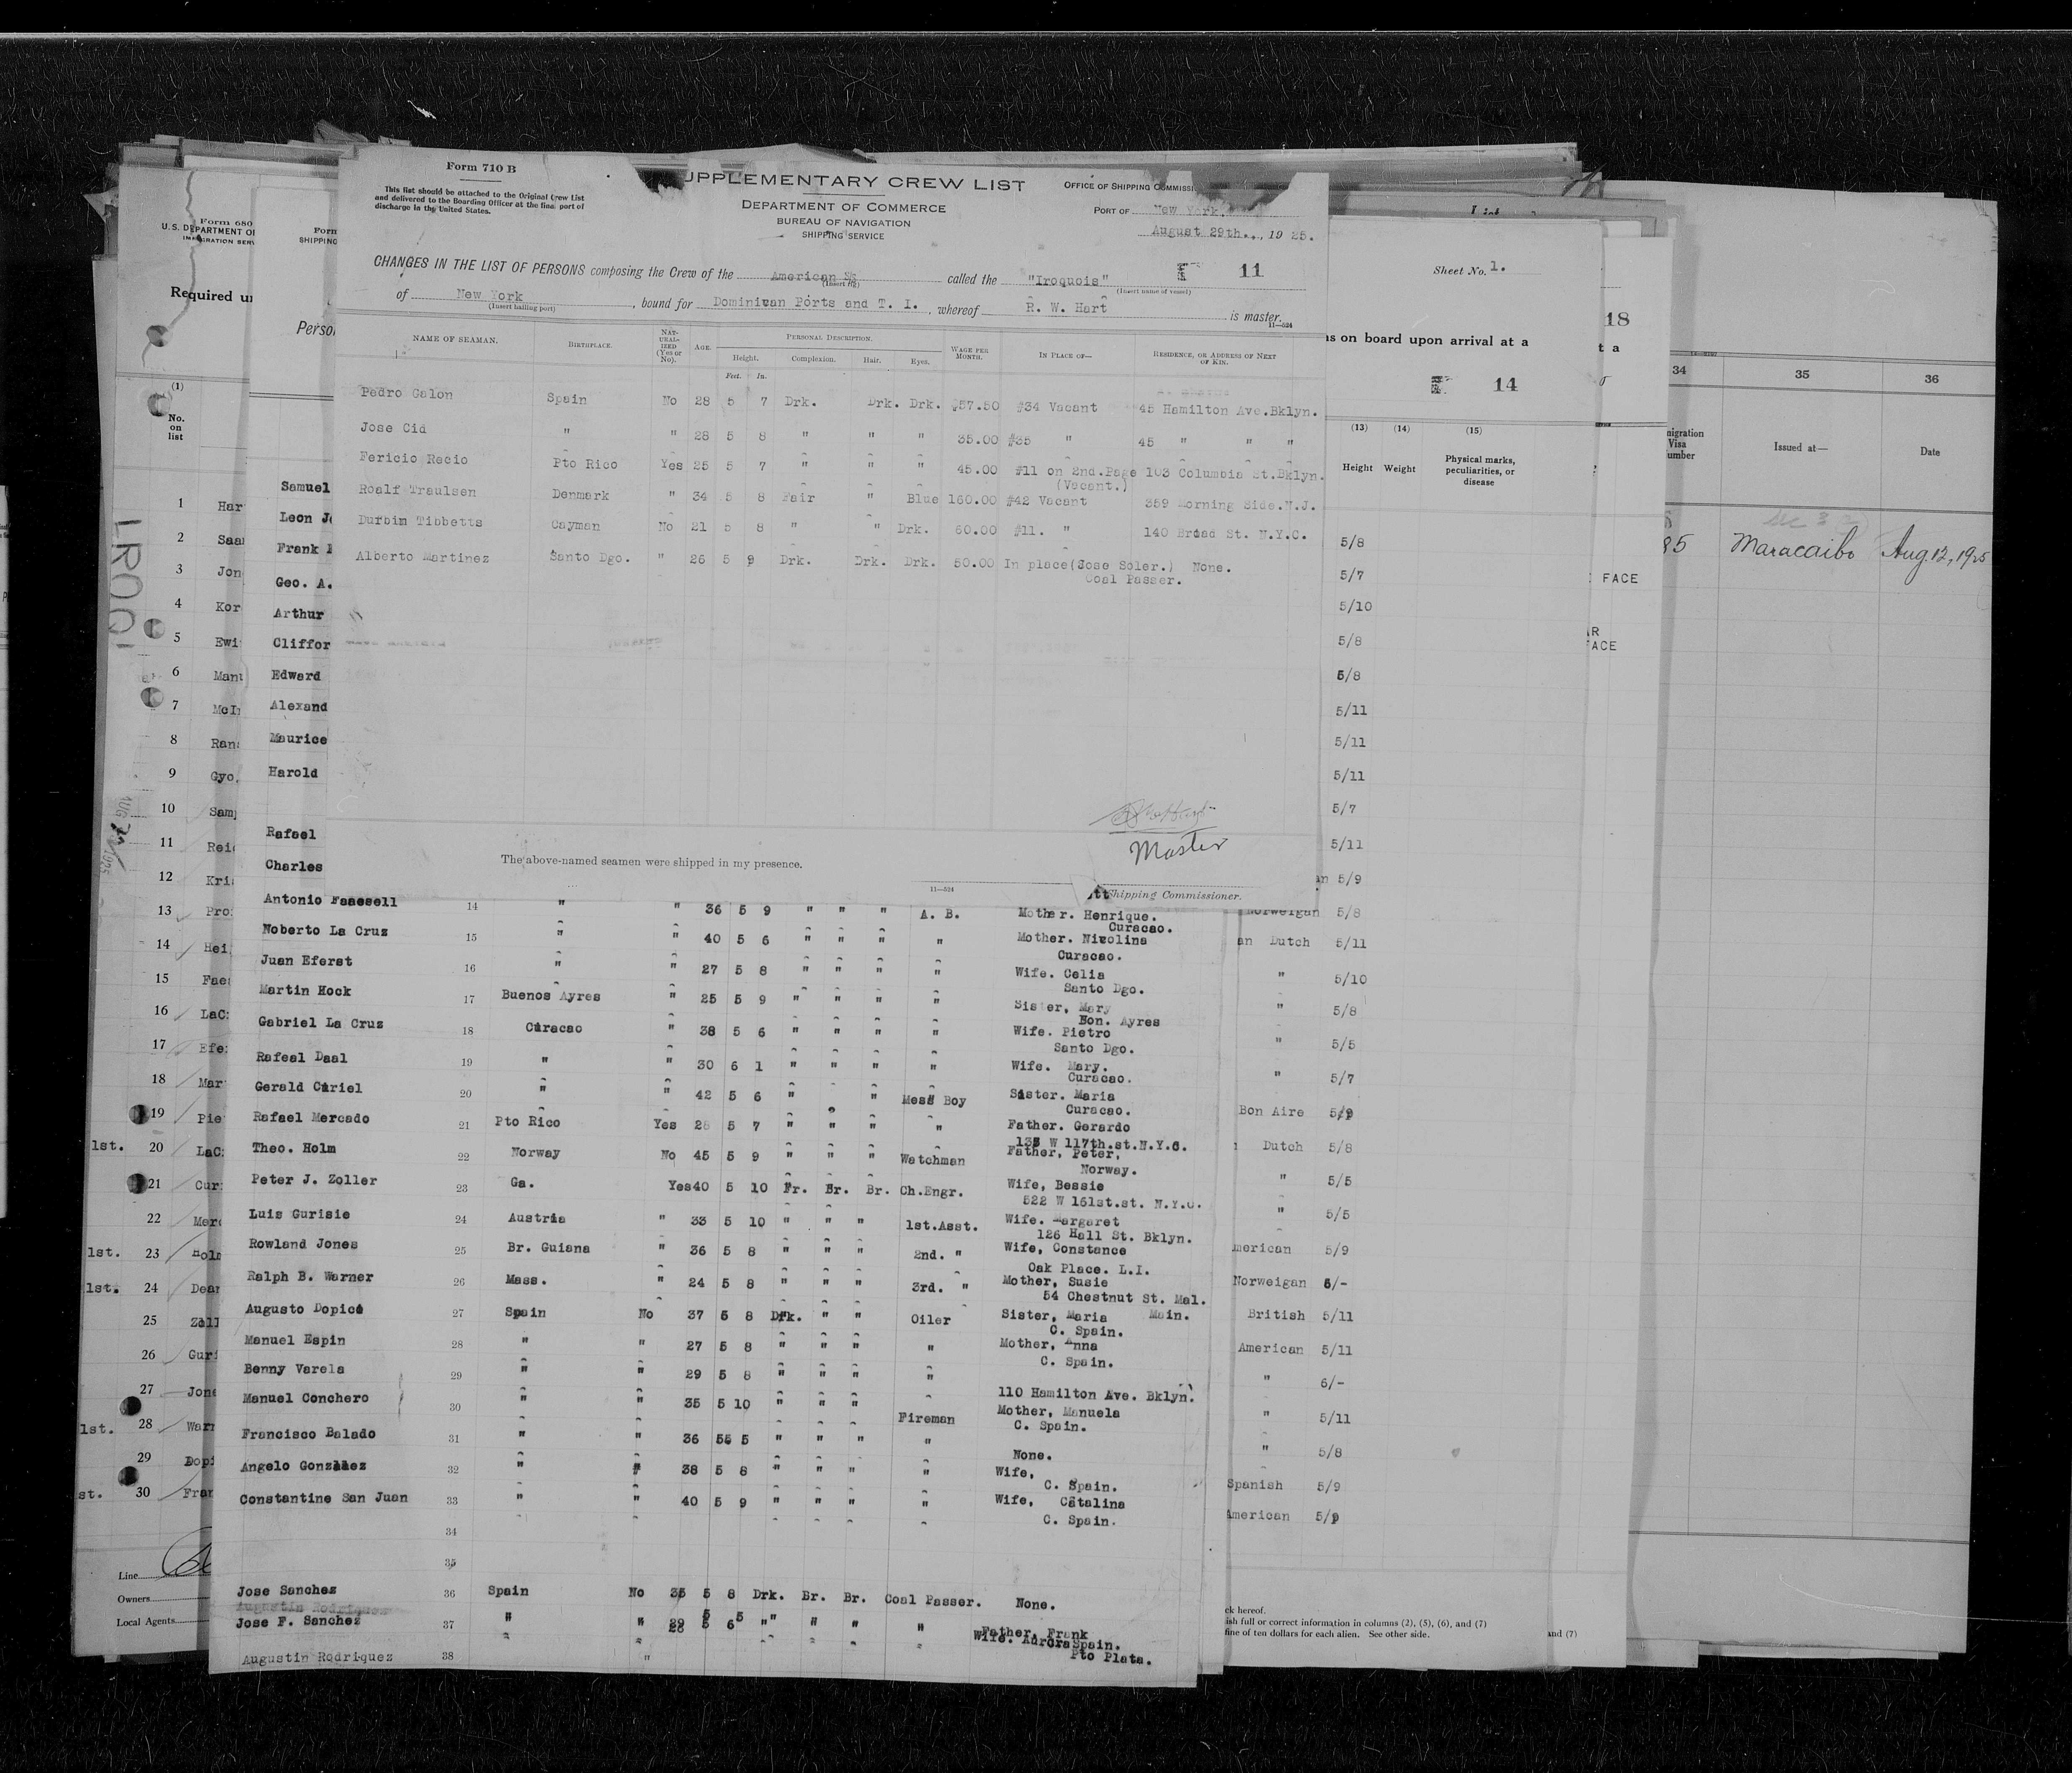 Form 710 B
This list should be attached to the Original Crew List
and delivered to the Boarding Officer at the final port of
discharge in the United States.
UPPLEMENTARY CREW LIST
DEPARTMENT OF COMMERCE
BUREAU OF NAVIGATION
SHIPPING SERVICE
OFFICE OF SHIPPING COMMISSI
PORT OF New York
August 29th., 1925.
CHANGES IN THE LIST OF PERSONS composing the Crew of the American SS called the "Iroquois" 11
(Insert name of vessel)
of New York, bound for Dominican Ports and T. I., whereof R. W. Hart is master.
(Insert hailing port) 11—524
NAME OF SEAMAN. BIRTHPLACE. NAT-URAL-IZED (Yes or No). AGE. PERSONAL DESCRIPTION. Height. Feet. In. Complexion. Hair. Eyes. WAGE PER MONTH. IN PLACE OF— RESIDENCE, OR ADDRESS OF NEXT OF KIN.
Pedro Galon Spain No 28 5 7 Drk. Drk. Drk. $57.50 #34 Vacant 45 Hamilton Ave.Bklyn.
Jose Cid " " 28 5 8 " " " 35.00 #35 " 45 " " "
Fericio Recio Pto Rico Yes 25 5 7 " " " 45.00 #11 on 2nd.Page 103 Columbia St.Bklyn.
(Vacant.)
Roalf Traulsen Denmark " 34 5 8 Fair " Blue 160.00 #42 Vacant 359 Morning Side.N.J.
Durbim Tibbetts Cayman No 21 5 8 " " Drk. 60.00 #11. " 140 Broad St. N.Y.C.
Alberto Martinez Santo Dgo. " 26 5 9 Drk. Drk. Drk. 50.00 In place(Jose Soler.) None.
Coal Passer.
Master
The above-named seamen were shipped in my presence.
11—524
Shipping Commissioner.
Antonio Faaesell 14 " " 36 5 9 " " " A. B. Mother. Henrique.
Curacao.
Noberto La Cruz 15 " " 40 5 6 " " " " Mother. Nicolina
Curacao.
Juan Eferst 16 " " 27 5 8 " " " " Wife. Celia
Santo Dgo.
Martin Hock 17 Buenos Ayres " 25 5 9 " " " " Sister, Mary
Bon. Ayres
Gabriel La Cruz 18 Curacao " 38 5 6 " " " " Wife. Pietro
Santo Dgo.
Rafeal Daal 19 " " 30 6 1 " " " " Wife. Mary.
Curacao.
Gerald Curiel 20 " " 42 5 6 " " Mess Boy Sister. Maria
Curacao.
Rafael Mercado 21 Pto Rico Yes 28 5 7 " " " " Father. Gerardo
W 117th.st.N.Y.C.
Theo. Holm 22 Norway No 45 5 9 " " " Watchman Father, Peter,
Norway.
Peter J. Zoller 23 Ga. Yes 40 5 10 Fr. Br. Br. Ch.Engr. Wife, Bessie
522 W 151st.st. N.Y.C.
Luis Gurisie 24 Austria " 33 5 10 " " " 1st.Asst. Wife. Margaret
126 Hall St. Bklyn.
Rowland Jones 25 Br. Guiana " 36 5 8 " " " 2nd. " Wife, Constance
Oak Place. L.I.
Ralph B. Warner 26 Mass. " 24 5 8 " " " 3rd. " Mother, Susie
54 Chestnut St. Mal.
Augusto Dopico 27 Spain No 37 5 8 Drk. " " Oiler Sister, Maria Main.
C. Spain.
Manuel Espin 28 " " 27 5 8 " " " " Mother, Anna
C. Spain.
Benny Varela 29 " " 29 5 8 " " " "
110 Hamilton Ave. Bklyn.
Manuel Conchero 30 " " 35 5 10 " " " Fireman Mother, Manuela
C. Spain.
Francisco Balado 31 " " 36 5 5 " " " " None.
Angelo Gonzalez 32 " " 38 5 8 " " " " Wife,
C. Spain.
Constantine San Juan 33 " " 40 5 9 " " " " Wife, Catalina
C. Spain.
34
35
Jose Sanchez 36 Spain No 35 5 8 Drk. Br. Br. Coal Passer. None.
Jose F. Sanchez 37 " " " " " " Father, Frank
Wife. Aurora Spain.
Augustin Rodriquez 38 " Pto Plata.
Form 680
U.S. DEPARTMENT OF
IMMIGRATION SERV
Form
SHIPPING
Required u
Perso
(1)
No.
on
list
1 Har
2 Saa
3 Jon
4 Kor
5 Ewi
6 Manu
7 McI
8 Ran
9 Gyo.
10 Sam
11 Rei
12 Kri
13 Pro
14 Hei
15 Fae
16 LaC
17 Efe
18 Mar
19 Pie
1st. 20 LaC
21 Cur
22 Merc
1st. 23 Holm
1st. 24 Dear
25 Zoll
26 Guri
27 Jone
1st. 28 Warn
29 Dopi
st. 30 Fran
Line
Owners
Local Agents
Samuel
Leon J
Frank
Geo. A.
Arthur
Cliffor
Edward
Alexand
Maurice
Harold
Rafael
Charles
LROQ
Sheet No. 1.
ns on board upon arrival at a
14
(13) (14) (15)
Height Weight Physical marks,
peculiarities, or
disease
5/8
5/7
5/10
5/8
5/8
5/11
5/11
5/11
5/7
5/11
an 5/9
Norweigan 5/8
an Dutch 5/11
" 5/10
" 5/8
" 5/5
" 5/7
Bon Aire 5/9
Dutch 5/8
" 5/5
" 5/5
merican 5/9
Norweigan 6/-
British 5/11
American 5/11
" 6/-
" 5/11
" 5/8
Spanish 5/9
American 5/9
ck hereof.
ish full or correct information in columns (2), (5), (6), and (7)
fine of ten dollars for each alien. See other side.
and (7)
18
t a
FACE
FACE
34 35 36
migration
Visa
umber
Issued at—
Date
85 Maracaibo Aug. 12, 1925